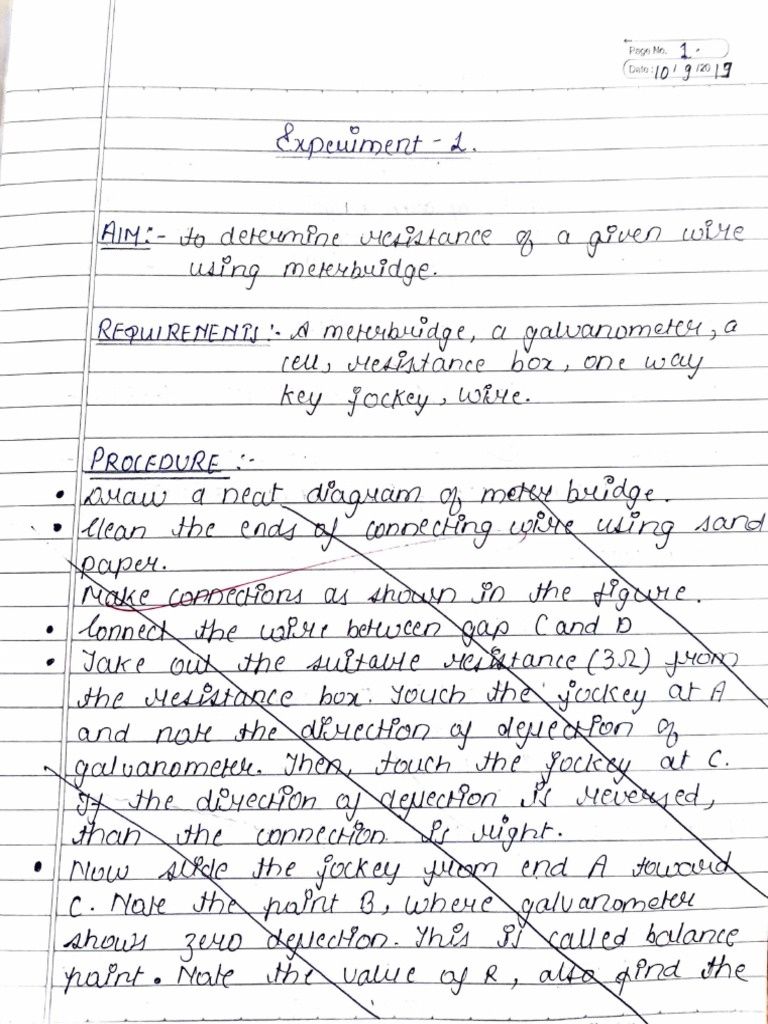 Page No. 1.
Date: 10/9/2019
Experiment - 1.
AIM:- to determine resistance of a given wire
using meterbridge.
REQUIREMENTS:- A meterbridge, a galvanometer, a
cell, resistance box, one way
key jockey, wire.
PROCEDURE :-
• Draw a neat diagram of meter bridge.
• Clean the ends of connecting wire using sand
paper.
Make connections as shown in the figure.
• Connect the wire between gap C and D
• Take out the suitable resistance (3Ω) from
the resistance box. Touch the jockey at A
and note the direction of deflection of
galvanometer. Then, touch the jockey at C.
If the direction of deflection is reversed,
than the connection is right.
• Now slide the jockey from end A toward
C. Note the point B, where galvanometer
shows zero deflection. This is called balance
point. Note the value of R, also find the